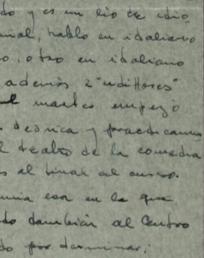 do y es un lío de idio
nal, hablo en italiano
o, otro en italiano
además 2 "uditores"
el martes empezó
técnica y practicamos
l teatro de la comedia
s al final al curso.
una cosa en la que
do también al Centro
do por terminar;